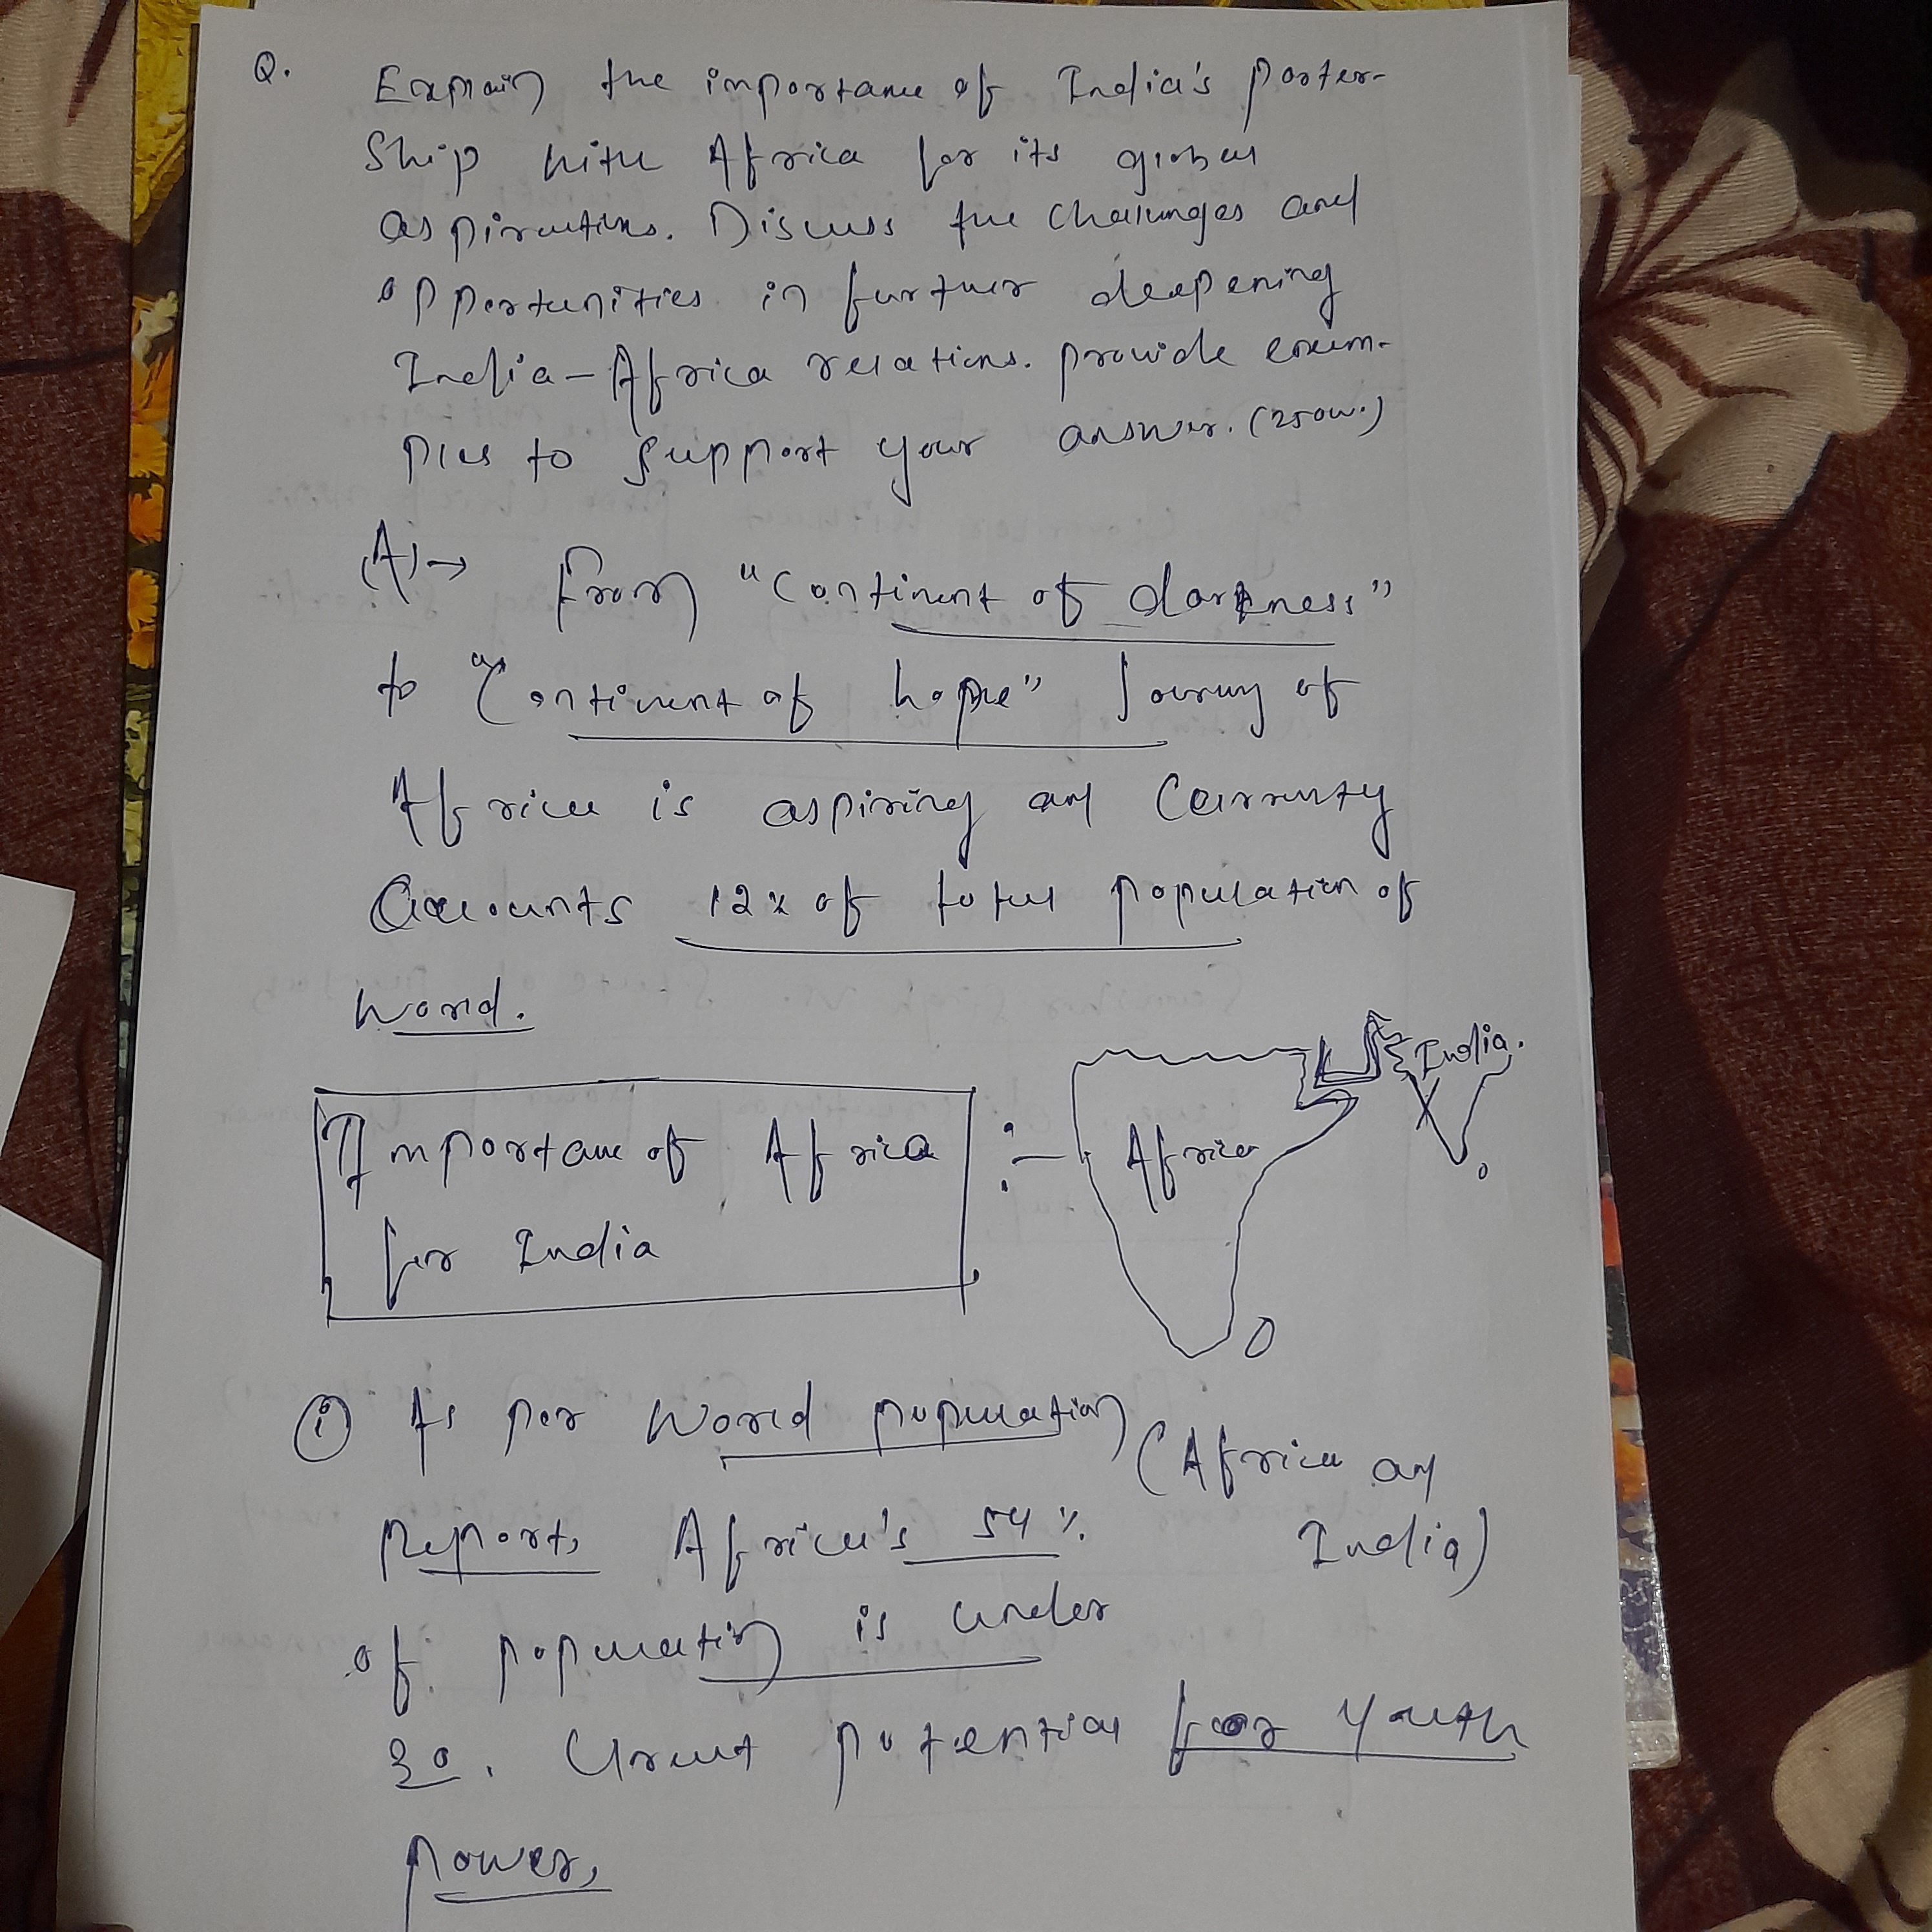 Q. Explain the importance of India's partner-
ship with Africa for its global
aspirations. Discuss the challenges and
opportunities in further deepening
India-Africa relations. provide exam-
ples to support your answer. (250w.)
(A)→ From "Continent of darkness"
to "Continent of hope" Journey of
Africa is aspiring and Currently
Accounts 12% of total population of
World.
Importance of Africa
for India
:-
Africa
India.
(i) As per World population
Report, Africa's 54%
of population is under
30. Great potential for Youth
power.
(Africa and
India)